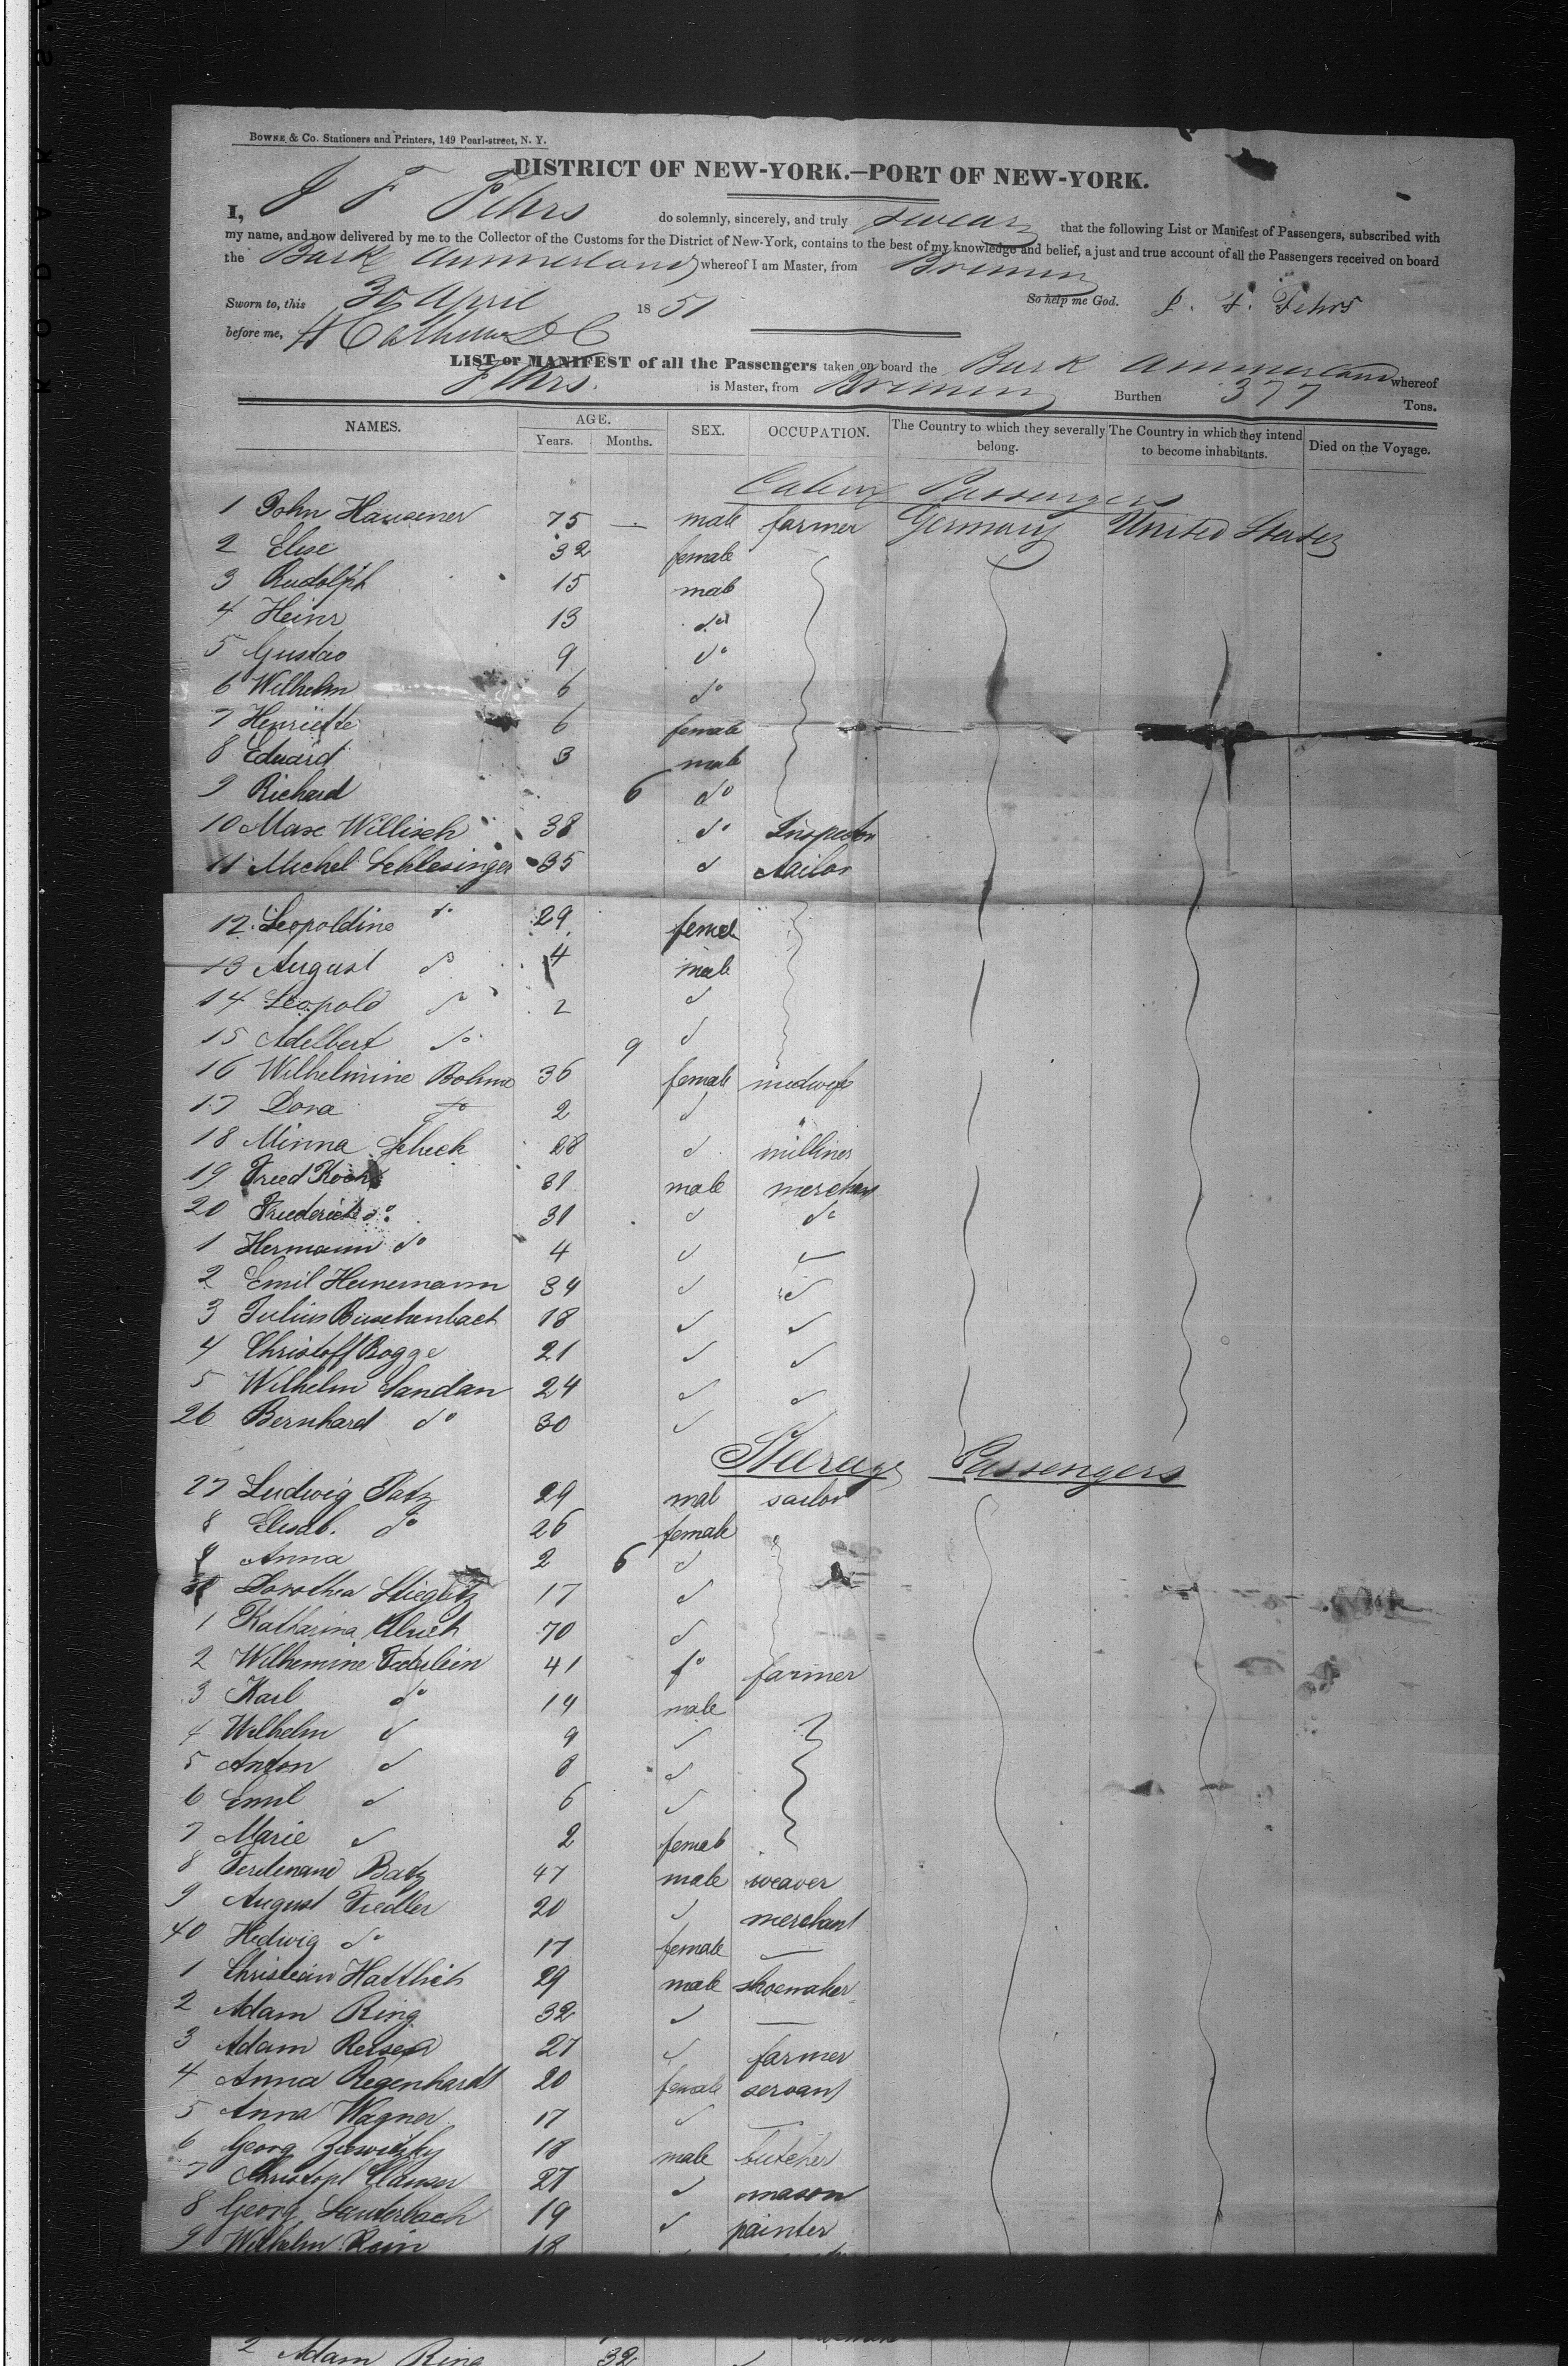 BOWNE & Co. Stationers and Printers, 149 Pearl-street, N. Y.
DISTRICT OF NEW-YORK.—PORT OF NEW-YORK.
I, J F Fehrs do solemnly, sincerely, and truly swear that the following List or Manifest of Passengers, subscribed with
my name, and now delivered by me to the Collector of the Customs for the District of New-York, contains to the best of my knowledge and belief, a just and true account of all the Passengers received on board
the Bark Ammerland whereof I am Master, from Bremen
Sworn to, this 30 April 1851 So help me God. J. F. Fehrs
before me,
LIST or MANIFEST of all the Passengers taken on board the Bark Ammerland whereof
Fehrs. is Master, from Bremen Burthen 377 Tons.
NAMES. AGE. Years. Months. SEX. OCCUPATION. The Country to which they severally belong. The Country in which they intend to become inhabitants. Died on the Voyage.
Cabin Passengers
1 John Hausener 75 — male farmer Germany United States
2 Elise 32 female
3 Rudolph 15 male
4 Heinr 13 do
5 Gustav 9 do
6 Wilhelm 6 do
7 Henriette 6 female
8 Eduard 3 male
9 Richard 6 do
10 Max Willisch 38 do Inspector
11 Michel Schlesinger 35 d tailor
12 Leopoldine do 29 female
13 August do 4 male
14 Leopold do 2 d
15 Adelbert do 9 d
16 Wilhelmine Bohme 36 female midwife
17 Dora do 2 d
18 Minna Scheck 28 d milliner
19 Fried Koch 31 male merchant
20 Friederich do 31 d do
1 Hermann do 4 d —
2 Emil Heinemann 34 d d
3 Julius Buschenbach 18 d d
4 Christoff Bogge 21 d d
5 Wilhelm Sandan 24 d d
26 Bernhard do 30 d
Steerage Passengers
27 Ludwig Patz 29 male sailor
8 Elisab. do 26 female
9 Anna 2 6 d
30 Dorothea Stieglitz 17 d
1 Katharina Ulrich 70 d
2 Wilhemine 41 do farmer
3 Karl do 14 male
4 Wilhelm d 9 d
5 Anton d 8 d
6 Emil d 6 d
7 Marie d 2 female
8 Ferdinand Batz 47 male weaver
9 August Fiedler 20 d merchant
40 Hedwig do 17 female —
1 Christian Hattlich 29 male shoemaker
2 Adam Ring 32 d —
3 Adam 27 d farmer
4 Anna Regenhardt 20 female servant
5 Anna Wagner 17 d —
6 Georg 18 male butcher
7 Christoph Clauser 27 d mason
8 Georg Lauterbach 19 d painter
9 Wilhelm Rein 18
2 Adam Ring 32 d